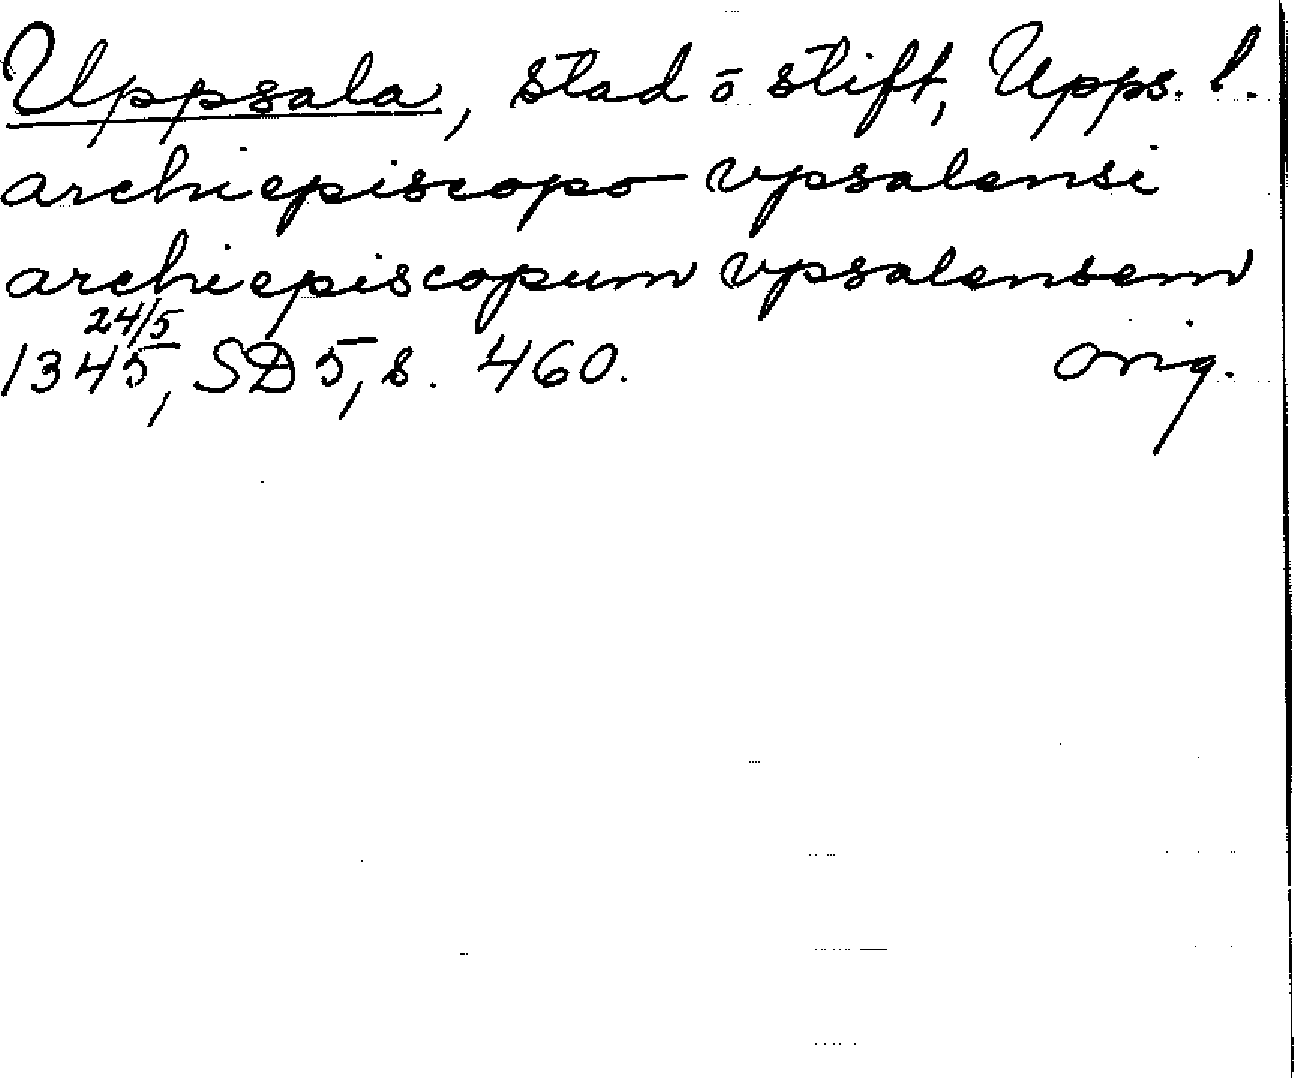 Uppsala, stad ō stift, Upps. l.
archiepiscopo vpsalensi
archiepiscopum vpsalensem
24/5
1345, SD 5, s. 460. orig.